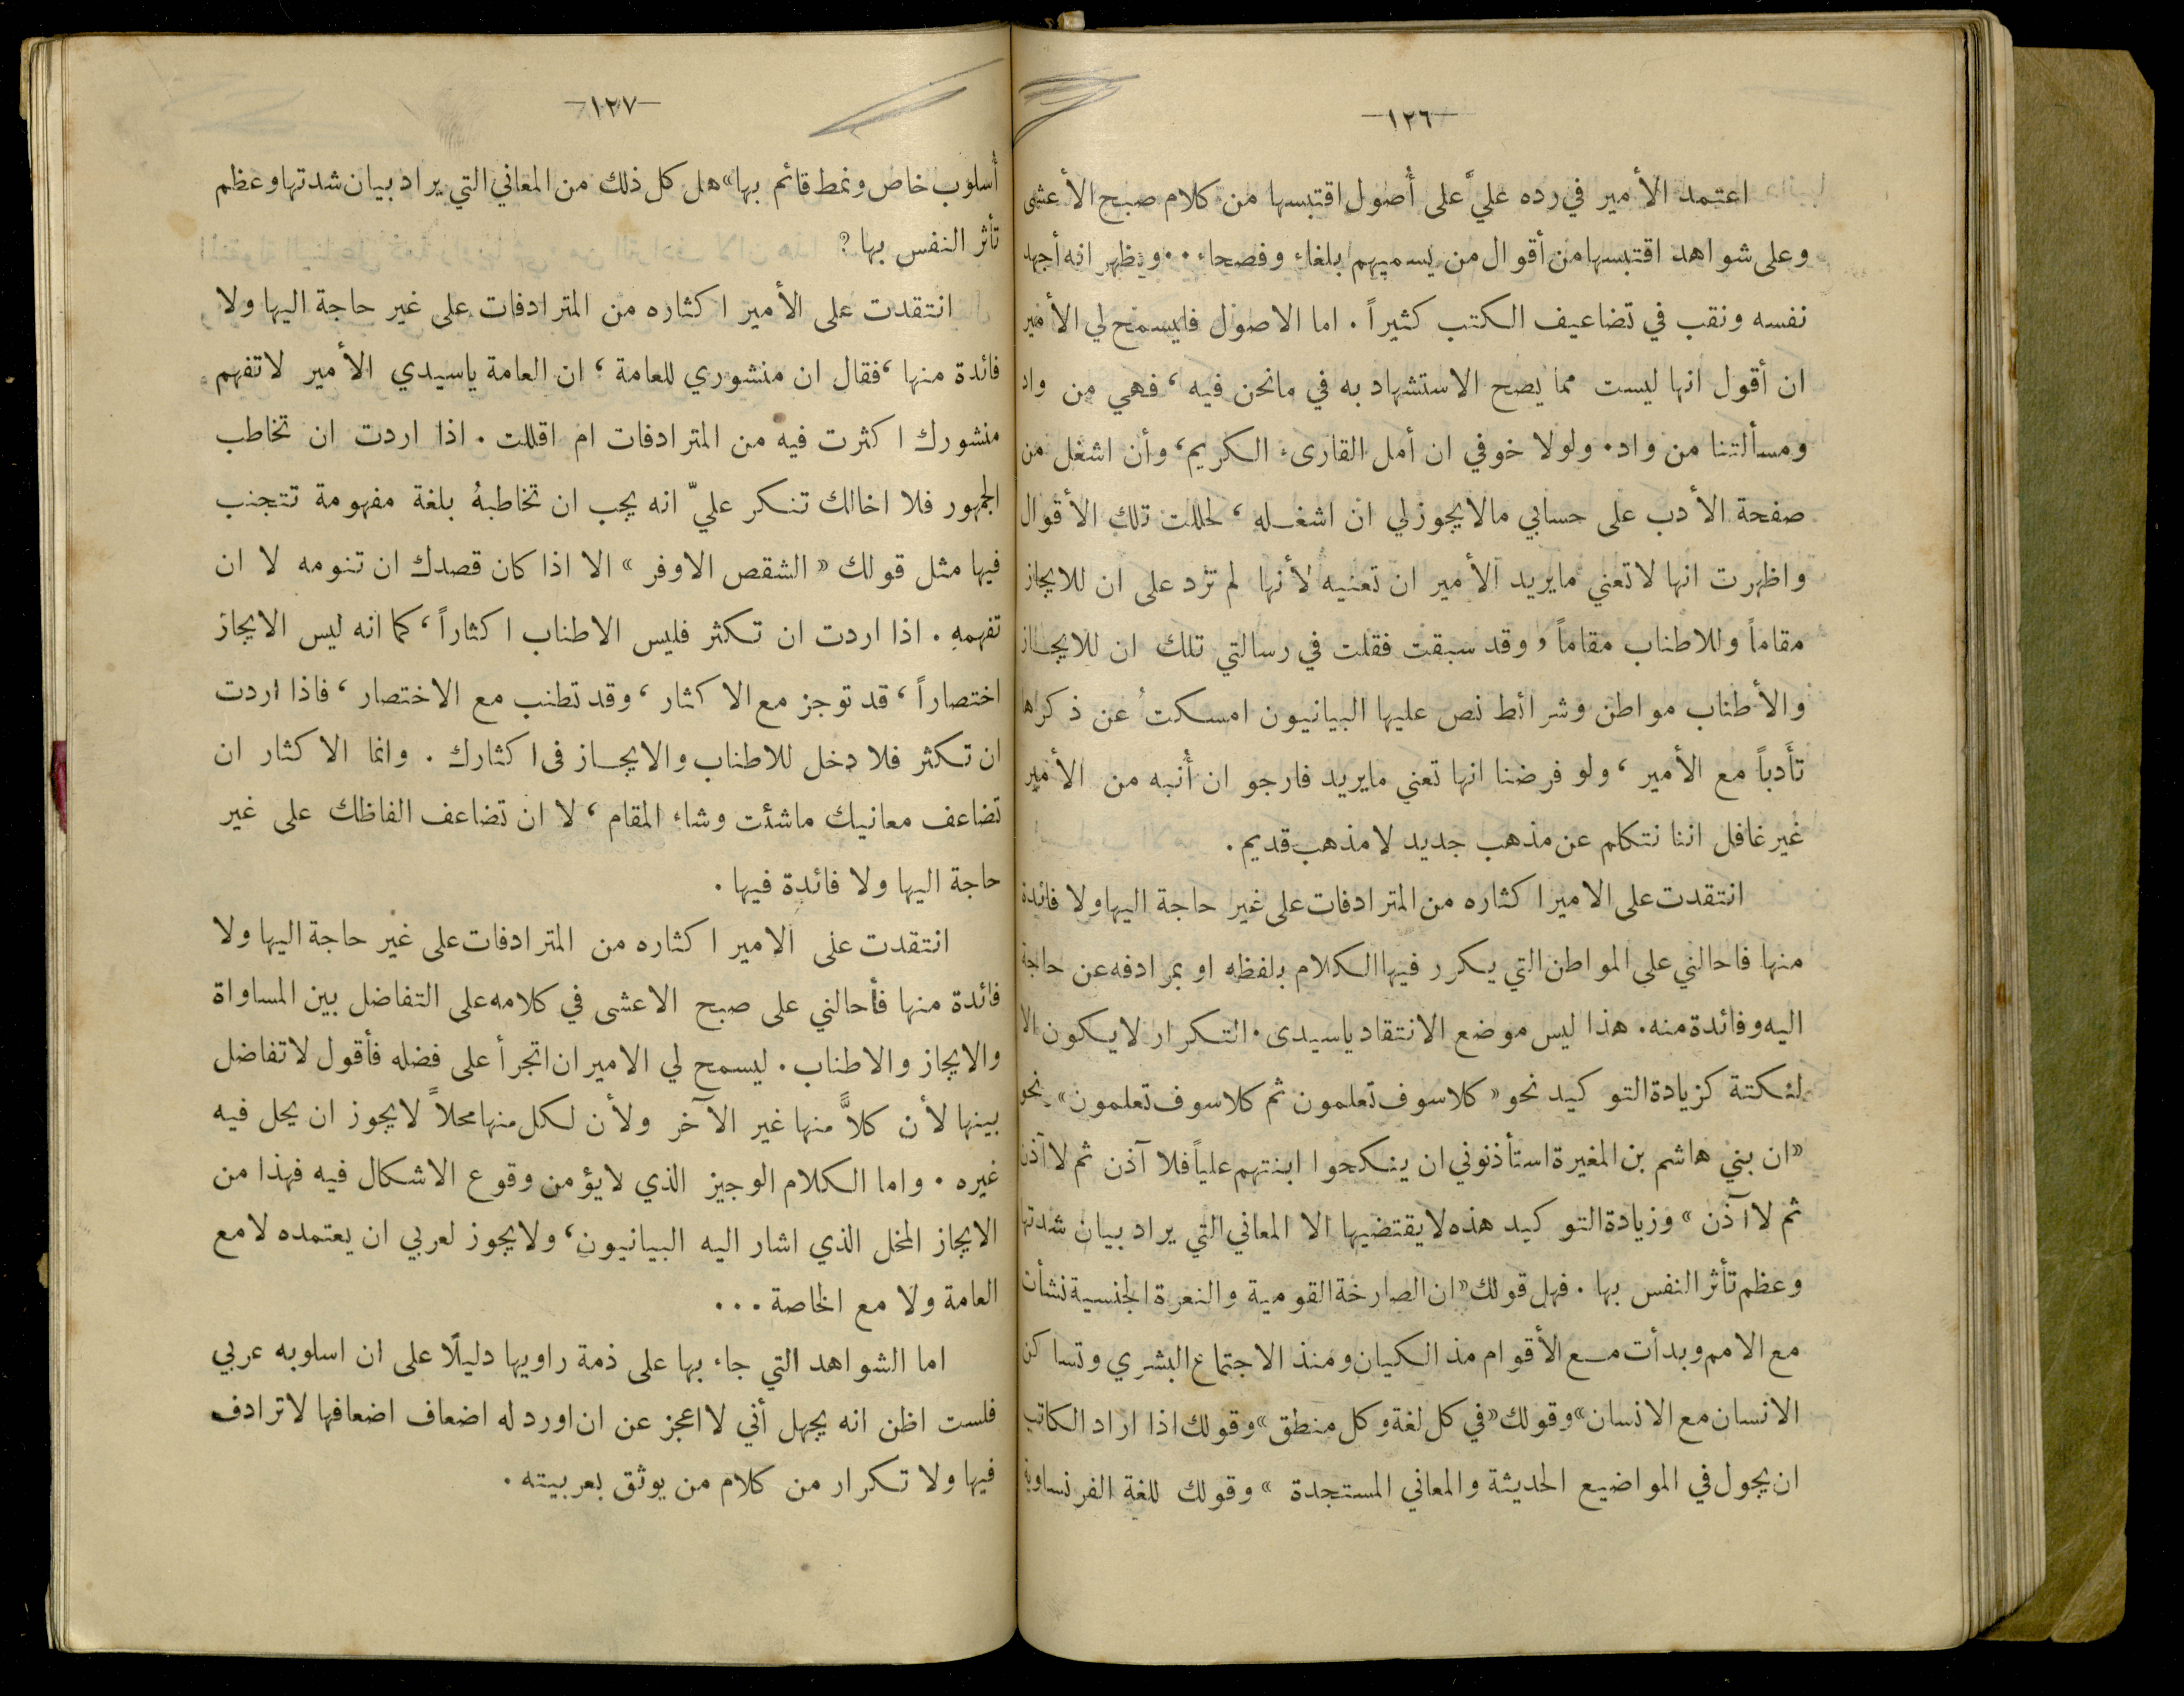 —١٢٦—
اعتمد الأمير في رده عليَّ على أُصول اقتبسها من كلام صبح الأعشى
وعلى شواهد اقتبسها من أقوال من يسميهم بلغاء وفصحاء ٠٠ ويظهر انه أجهد
نفسه ونقب في تضاعيف الكتب كثيراً . اما الاصول فليسمح لي الأمير
ان أقول انها ليست مما يصح الاستشهاد به في مانحن فيه ، فهي من واد
ومسألتنا من واد . ولولا خوفي ان أمل القارىء الكريم ، وأن اشغل من
صفحة الأدب على حسابي مالايجوزلي ان اشغله ، لحللت تلك الأقوال
واظهرت انها لاتعني مايريد الأمير ان تعنيه لأنها لم تزد على ان للايجاز
مقاماً وللاطناب مقاماً ، وقد سبقت فقلت في رسالتي تلك ان للايجاز
والأطناب مواطن وشرائط نص عليها البيانيون امسكتُ عن ذكراها
تأَدباً مع الأمير ، ولو فرضنا انها تعني مايريد فارجو ان أُنبه من الأمير
غير غافل اننا نتكلم عن مذهب جديد لا مذهب قديم .
انتقدت على الامير اكثاره من المترادفات على غير حاجة اليها ولا فائدة
منها فاحالني على المواطن التي يكرر فيها الكلام بلفظه او بمرادفه عن حاجة
اليه وفائدة منه . هذا ليس موضع الانتقاد ياسيدى . التكرار لايكون الا
لنكتة كزيادة التوكيد نحو «كلا سوف تعلمون ثم كلا سوف تعلمون» نحو
«ان بني هاشم بن المغيرة استأذنوني ان ينكحوا ابنتهم علياً فلا آذن ثم لا آذن
ثم لا آذن» وزيادة التوكيد هذه لايقتضيها الا المعاني التي يراد بيان شدتها
وعظم تأثر النفس بها . فهل قولك «ان الصارخة القومية والنعرة الجنسية نشأت
مع الامم وبدأت مع الأقوام مذ الكيان ومنذ الاجتماع البشري وتساكن
الانسان مع الانسان» وقولك «في كل لغة وكل منطق» وقولك اذا اراد الكاتب
ان يجول في المواضيع الحديثة والمعاني المستجدة » وقولك للغة الفرنساوية
—١٢٧—
أُسلوب خاص ونمط قائم بها» هل كل ذلك من المعاني التي يراد بيان شدتها وعظم
تأثر النفس بها ؟
انتقدت على الأمير اكثاره من المترادفات على غير حاجة اليها ولا
فائدة منها ، فقال ان منشوري للعامة ؛ ان العامة ياسيدي الأمير لاتفهم
منشورك اكثرت فيه من المترادفات ام اقللت . اذا اردت ان تخاطب
الجمهور فلا اخالك تنكر عليّ انه يجب ان تخاطبهُ بلغة مفهومة تتجنب
فيها مثل قولك « الشقص الاوفر » الا اذا كان قصدك ان تنومه لا ان
تفهمهِ . اذا اردت ان تكثر فليس الاطناب اكثاراً ، كما انه ليس الايجاز
اختصاراً ، قد توجز مع الاكثار ، وقد تطنب مع الاختصار ، فاذا اردت
ان تكثر فلا دخل للاطناب والايجاز فى اكثارك . وانما الاكثار ان
تضاعف معانيك ماشئت وشاء المقام ، لا ان تضاعف الفاظك على غير
حاجة اليها ولا فائدة فيها .
انتقدت على الامير اكثاره من المترادفات على غير حاجة اليها ولا
فائدة منها فأحالني على صبح الاعشى في كلامه على التفاضل بين المساواة
والايجاز والاطناب . ليسمح لي الامير ان اتجرأ على فضله فأقول لا تفاضل
بينها لأن كلاًّ منها غير الآخر ولأن لكل منها محلاً لايجوز ان يحل فيه
غيره . واما الكلام الوجيز الذي لايؤمن وقوع الاشكال فيه فهذا من
الايجاز المخل الذي اشار اليه البيانيون ، ولايجوز لعربي ان يعتمده لا مع
العامة ولا مع الخاصة ...
اما الشواهد التي جاء بها على ذمة راويها دليلاً على ان اسلوبه عربي
فلست اظن انه يجهل أني لا اعجز عن ان اورد له اضعاف اضعافها لا ترادف
فيها ولا تكرار من كلام من يوثق بعربيته .